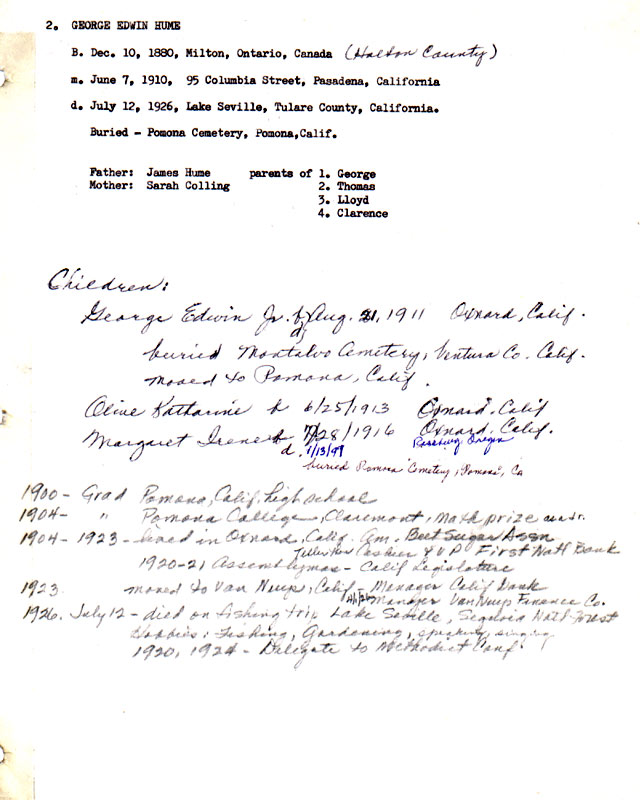 2. GEORGE EDWIN HUME
B. Dec. 10, 1880, Milton, Ontario, Canada (Halton County)
m. June 7, 1910, 95 Columbia Street, Pasadena, California
d. July 12, 1926, Lake Seville, Tulare County, California.
Buried - Pomona Cemetery, Pomona,Calif.
Father: James Hume parents of 1. George
Mother: Sarah Colling 2. Thomas
3. Lloyd
4. Clarence
Children:
George Edwin Jr. b Aug. 21, 1911 Oxnard, Calif.
d
buried Montalvo Cemetery, Ventura Co. Calif.
moved to Pomona, Calif.
Olive Katharine b 6/25/1913 Oxnard, Calif
Margaret Irene b 7/28/1916 Oxnard, Calif.
d. 1/13/99 Roseburg Oregon
buried Pomona Cemetery, Pomona, Ca
1900 - Grad Pomona, Calif. high school
1904 - " Pomona College, Claremont, Math prize
1904 - 1923 - lived in Oxnard, Calif. Am. Beet Sugar Assn
Teller then Cashier & V.P. First Natl Bank
1920-21 Assemblyman - Calif Legislature
1923 moved to Van Nuys, Calif - Manager Calif Bank
Manager Van Nuys Finance Co.
1926. July 12 - died on fishing trip Lake Seville, Sequoia Natl Forest
Hobbies: Fishing, Gardening, speaking, singing
1920, 1924 - Delegate to Methodist Conf.